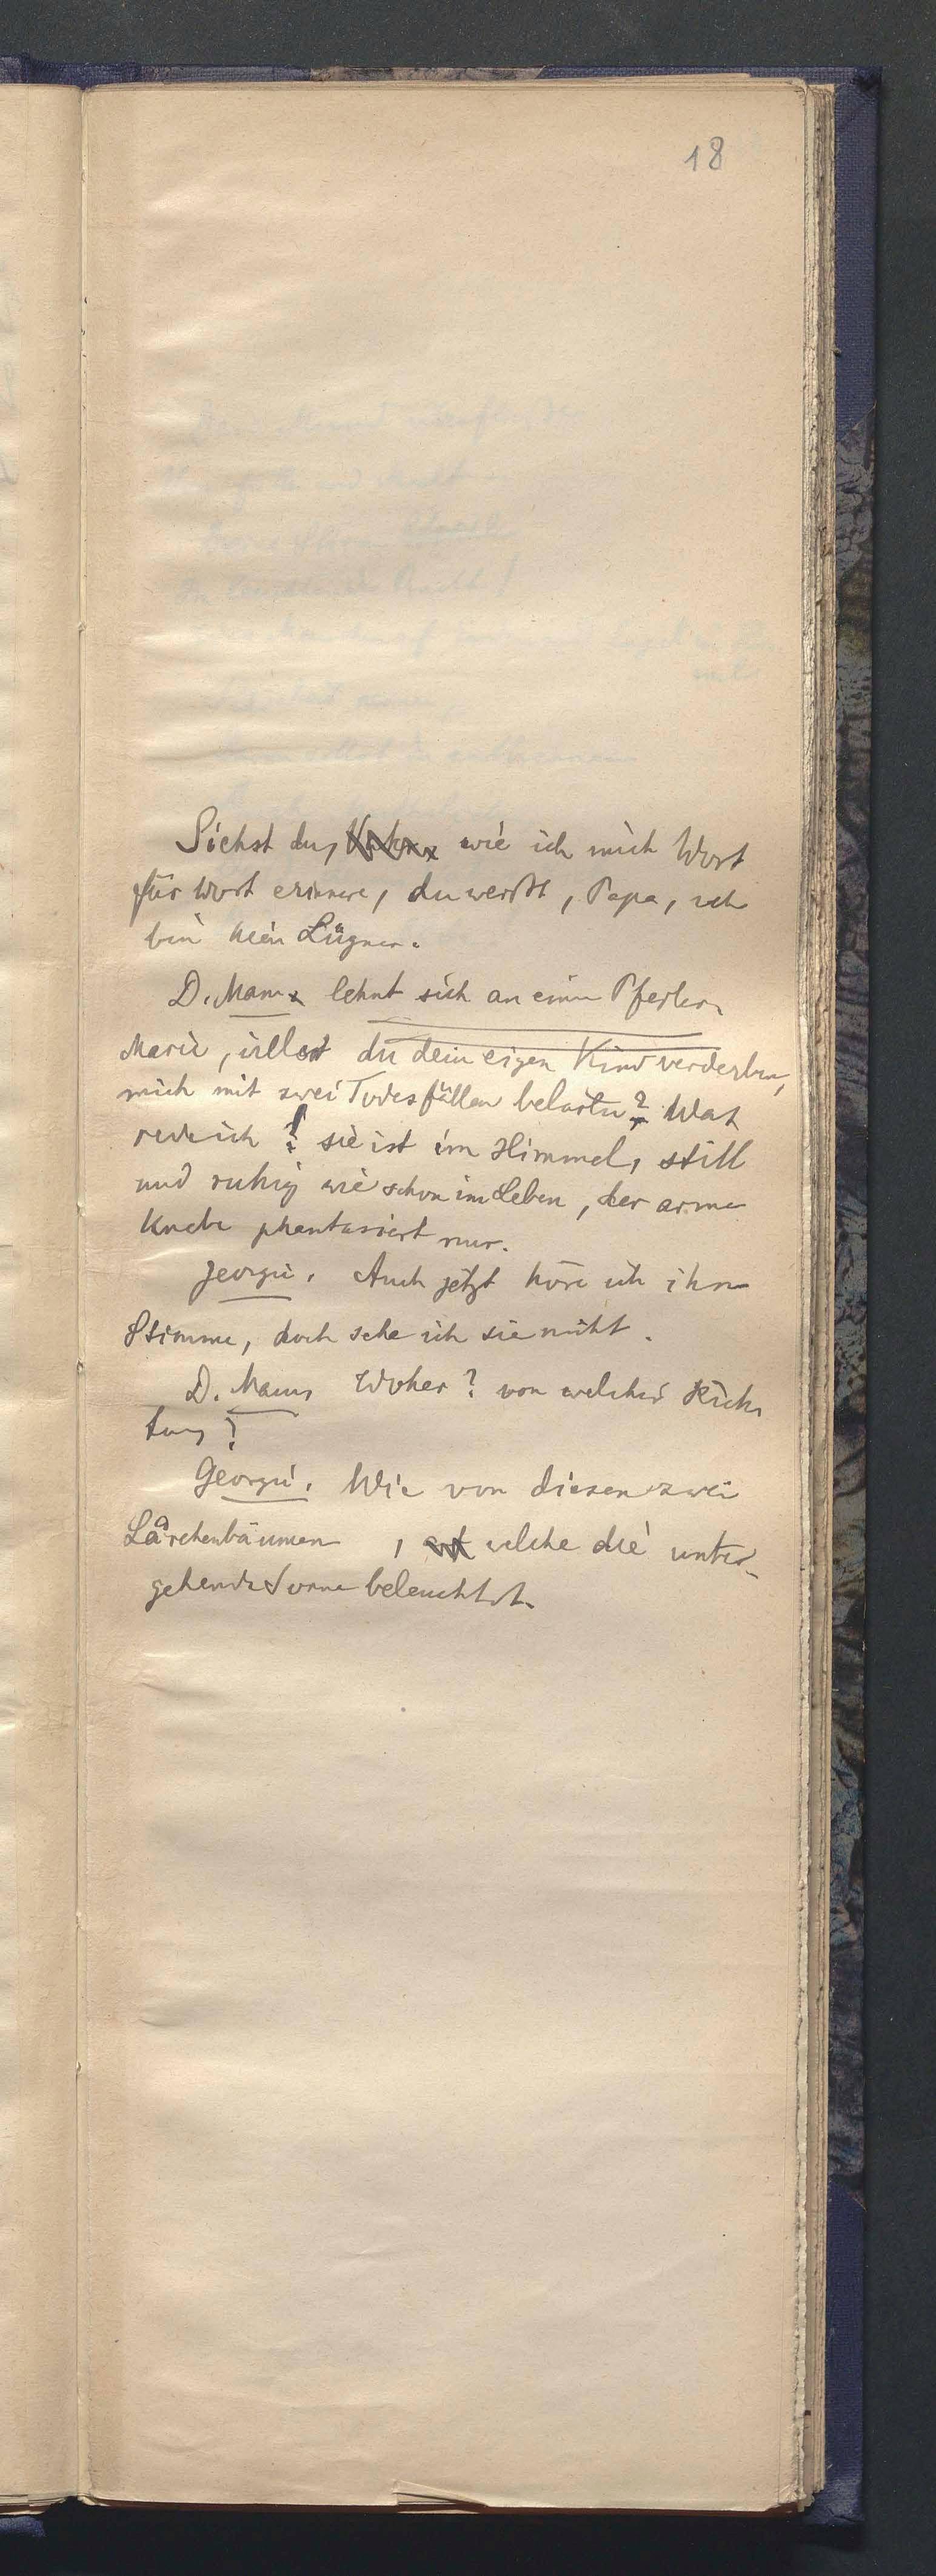 18
Siehst du, wie ich mich Wort
für Wort erinnere, du weißt, Papa, ich
bin kein Lügner.
D. Mann lehnt sich an einen Pfeiler.
Marie, willst du dein eigen Kind verderben,
mich mit zwei Todesfällen belasten? Was
rede ich! sie ist im Himmel, still
und ruhig wie schon im Leben, der arme
Knabe phantasiert nur.
Georgie. Auch jetzt höre ich ihre
Stimme, doch sehe ich sie nicht.
D. Mann, Woher? von welcher Rich
tung?
Georgie. Wie von diesen zwei
Lärchenbäumen, welche die unter-
gehende Sonne beleuchtet.